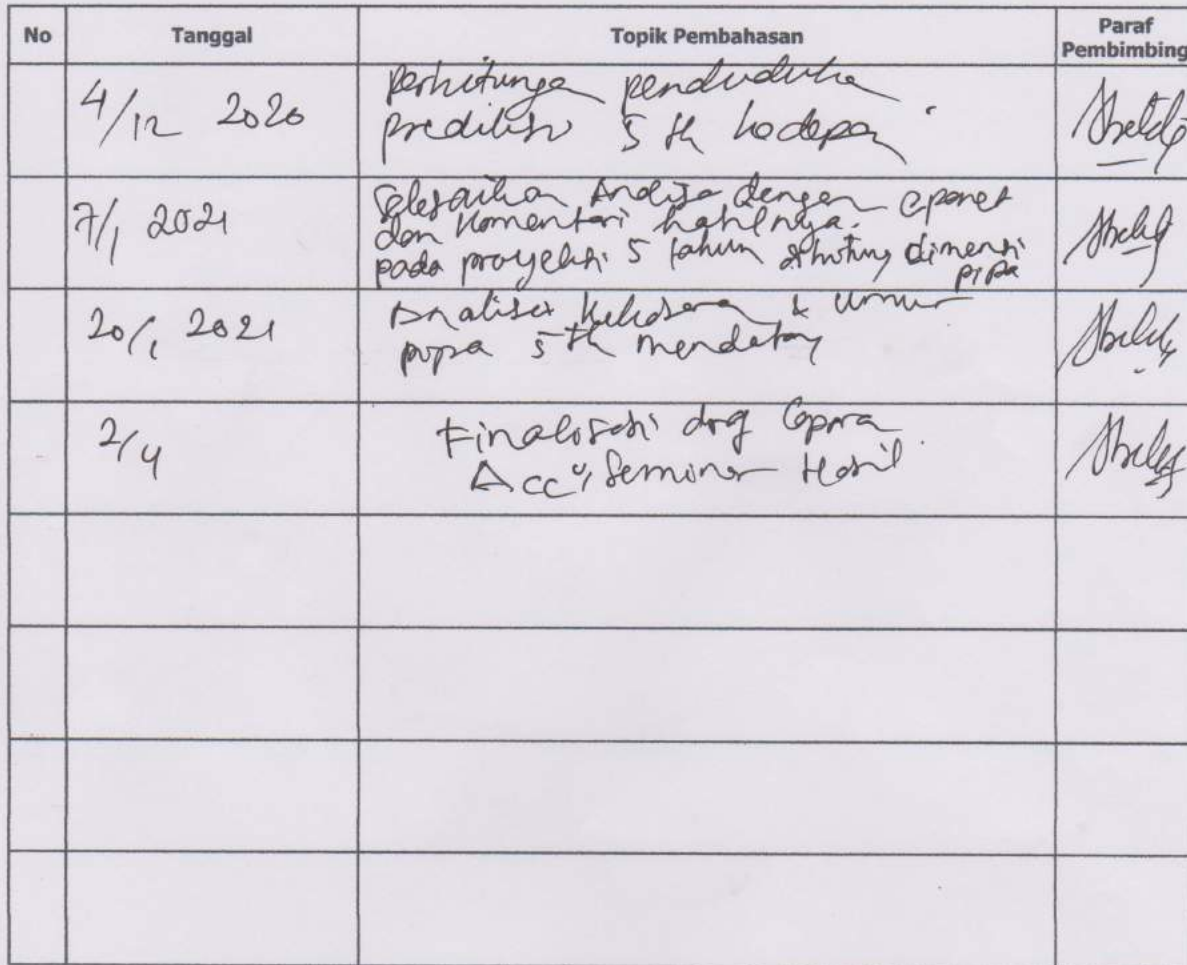 No Tanggal Topik Pembahasan Paraf Pembimbing
4/12 2020
Perhitungan penduduk
prediksi 5 th kedepan
7/1 2021
Selesaikan Analisa dengan epanet
dan komentari hasilnya.
pada proyeksi 5 tahun dihitung dimensi
pipa
20/1 2021
Analisa & umur
pipa 5 th mendatang
2/4
Finalisasi
Acc Seminar Hasil